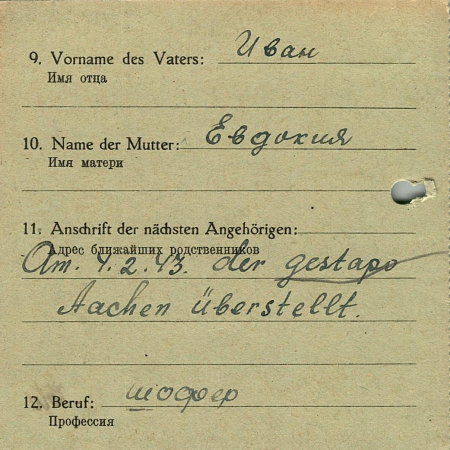 9. Vorname des Vaters: Иван
Имя отца
10. Name der Mutter: Евдокия
Имя матери
11. Anschrift der nächsten Angehörigen:
Адрес ближайших родственников
Am. 4.2.43. der gestapo
Aachen überstellt.
12. Beruf: шофер
Профессия